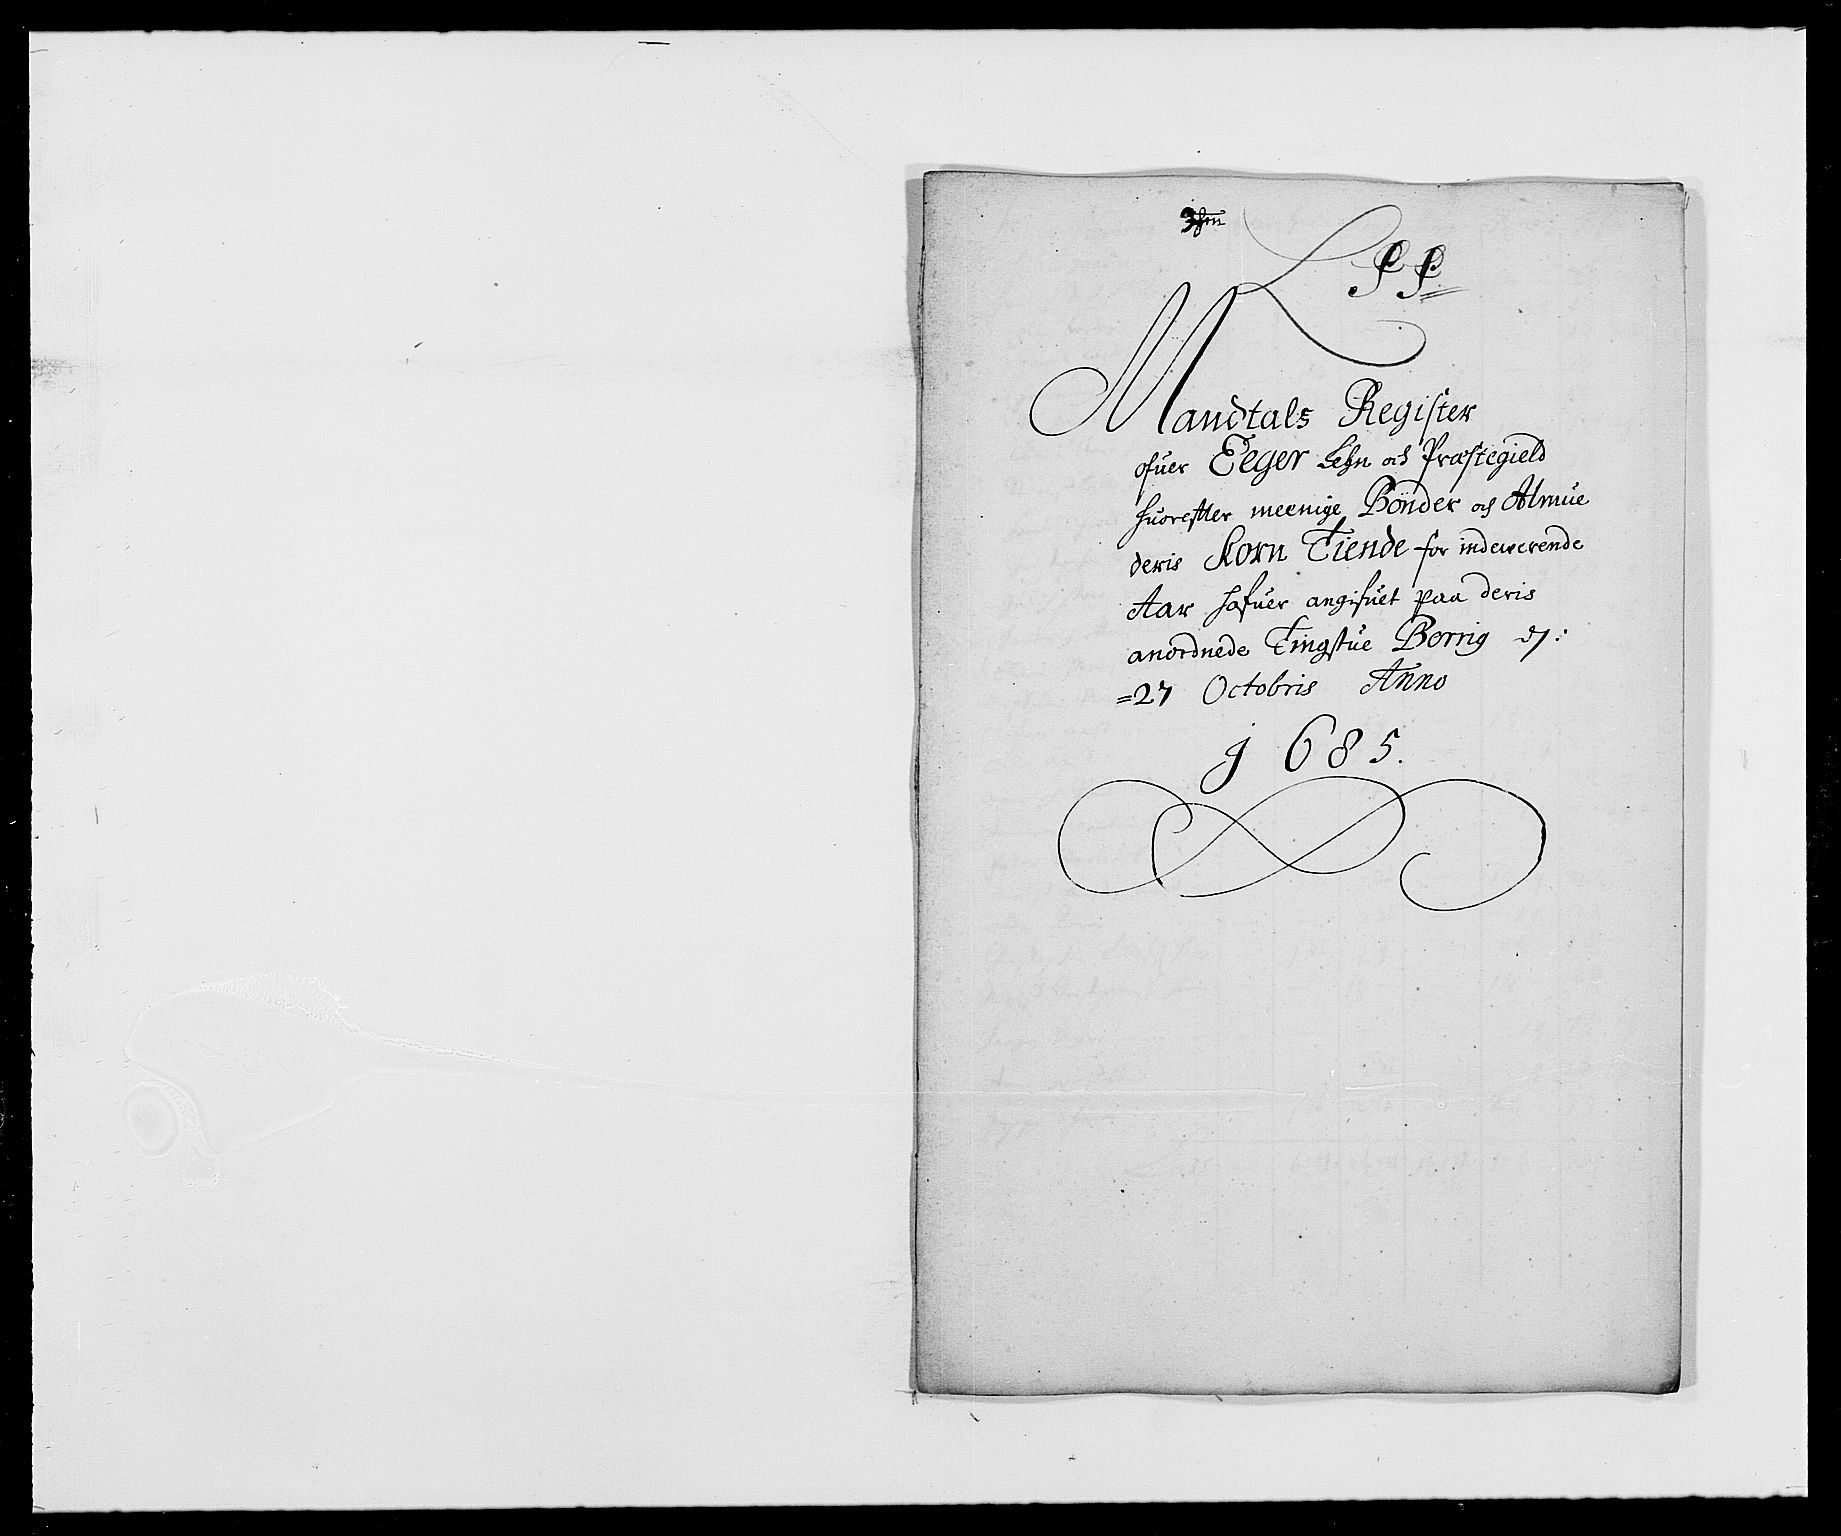 L S S
Mandtals Register
ofuer Eeger Lehn och Præstegield
huorefter meenige Bönder och Almue
deris Korn Tiende for indewerende
Aar hafuer angifuet paa deris
anordnede Tingstue Berrig d:
=27 Octobris Anno
1685.